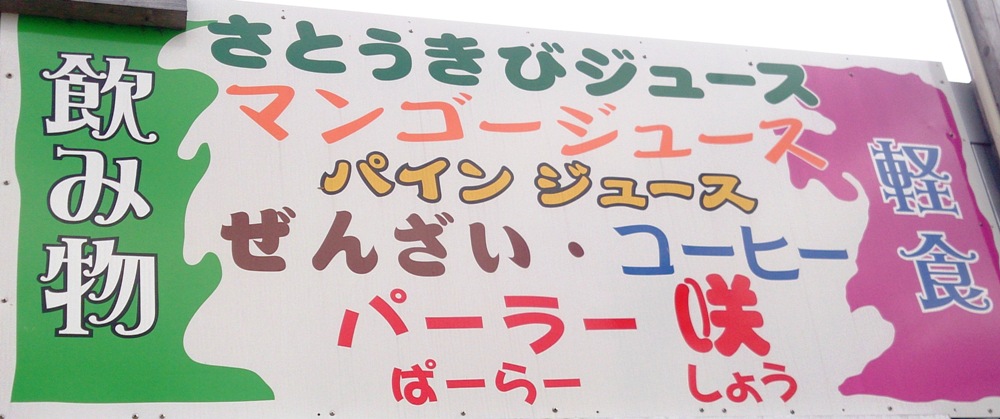 飲み物
さとうきびジュース
マンゴージュース
パインジュース
ぜんざい・コーヒー
パーラー 咲
ぱーらー しょう
軽食